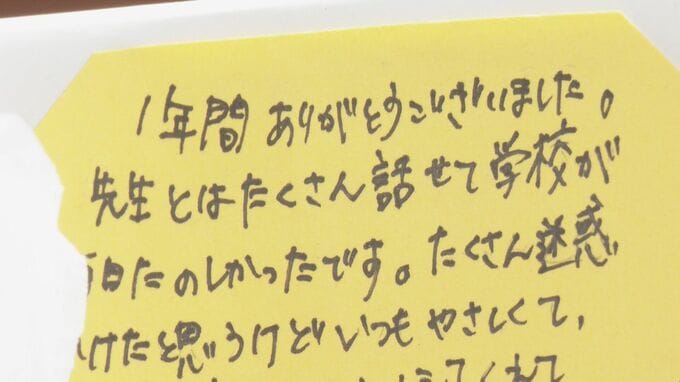 1年間 ありがとうございました。
先生とはたくさん話せて学校が
日たのしかったです。たくさん迷惑
けた思うけどいつもやさしくて、
くれて